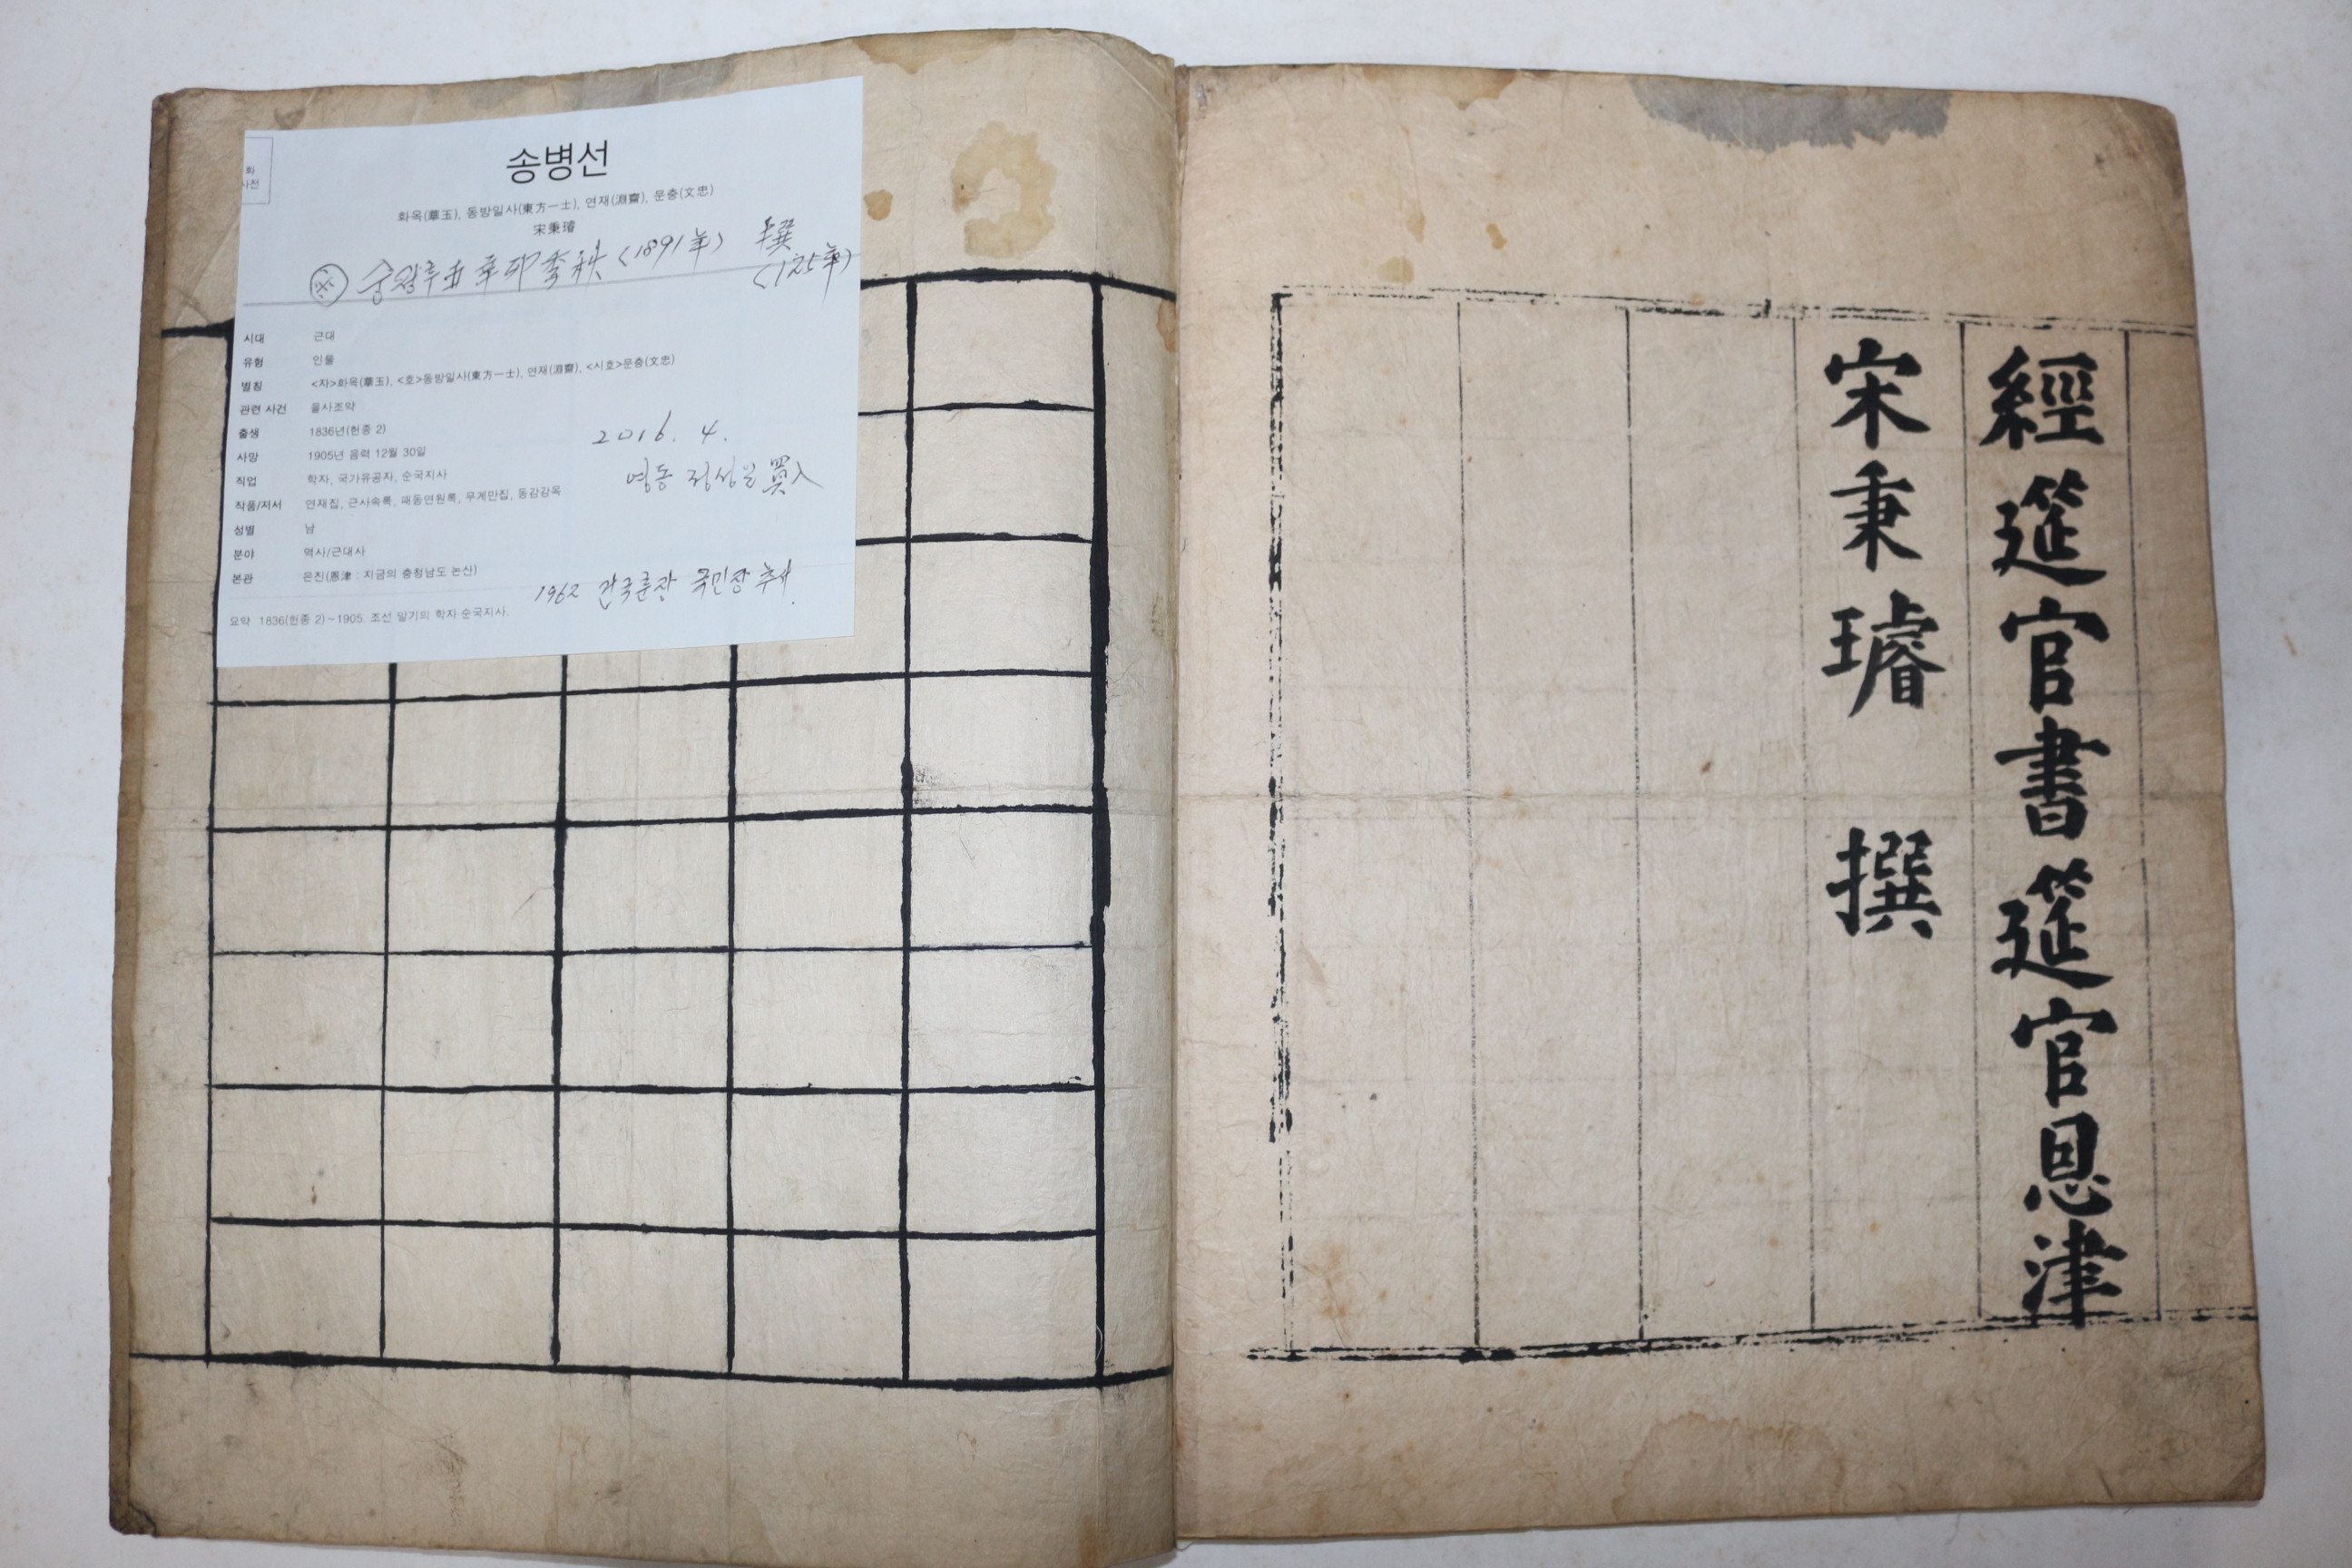 화
사전
송병선
화옥(華玉), 동방일사(東方一士), 연재(淵齋), 문충(文忠)
宋秉璿
※ 숭정후五辛卯季秋 <1891年> 撰
<125年>
시대 근대
유형 인물
별칭 <자>화옥(華玉), <호>동방일사(東方一士), 연재(淵齋), <시호>문충(文忠)
관련 사건 을사조약
출생 1836년(헌종 2)
사망 1905년 음력 12월 30일
직업 학자, 국가유공자, 순국지사
작품/저서 연재집, 근사속록, 패동연원록, 무계만집, 동감강목
성별 남
분야 역사/근대사
본관 은진(恩津 : 지금의 충청남도 논산)
요약 1836(헌종 2)~1905. 조선 말기의 학자·순국지사.
2016. 4.
영동 정성일 買入
1962 건국훈장 국민장 추서.
經筵官書筵官恩津
宋秉璿 撰